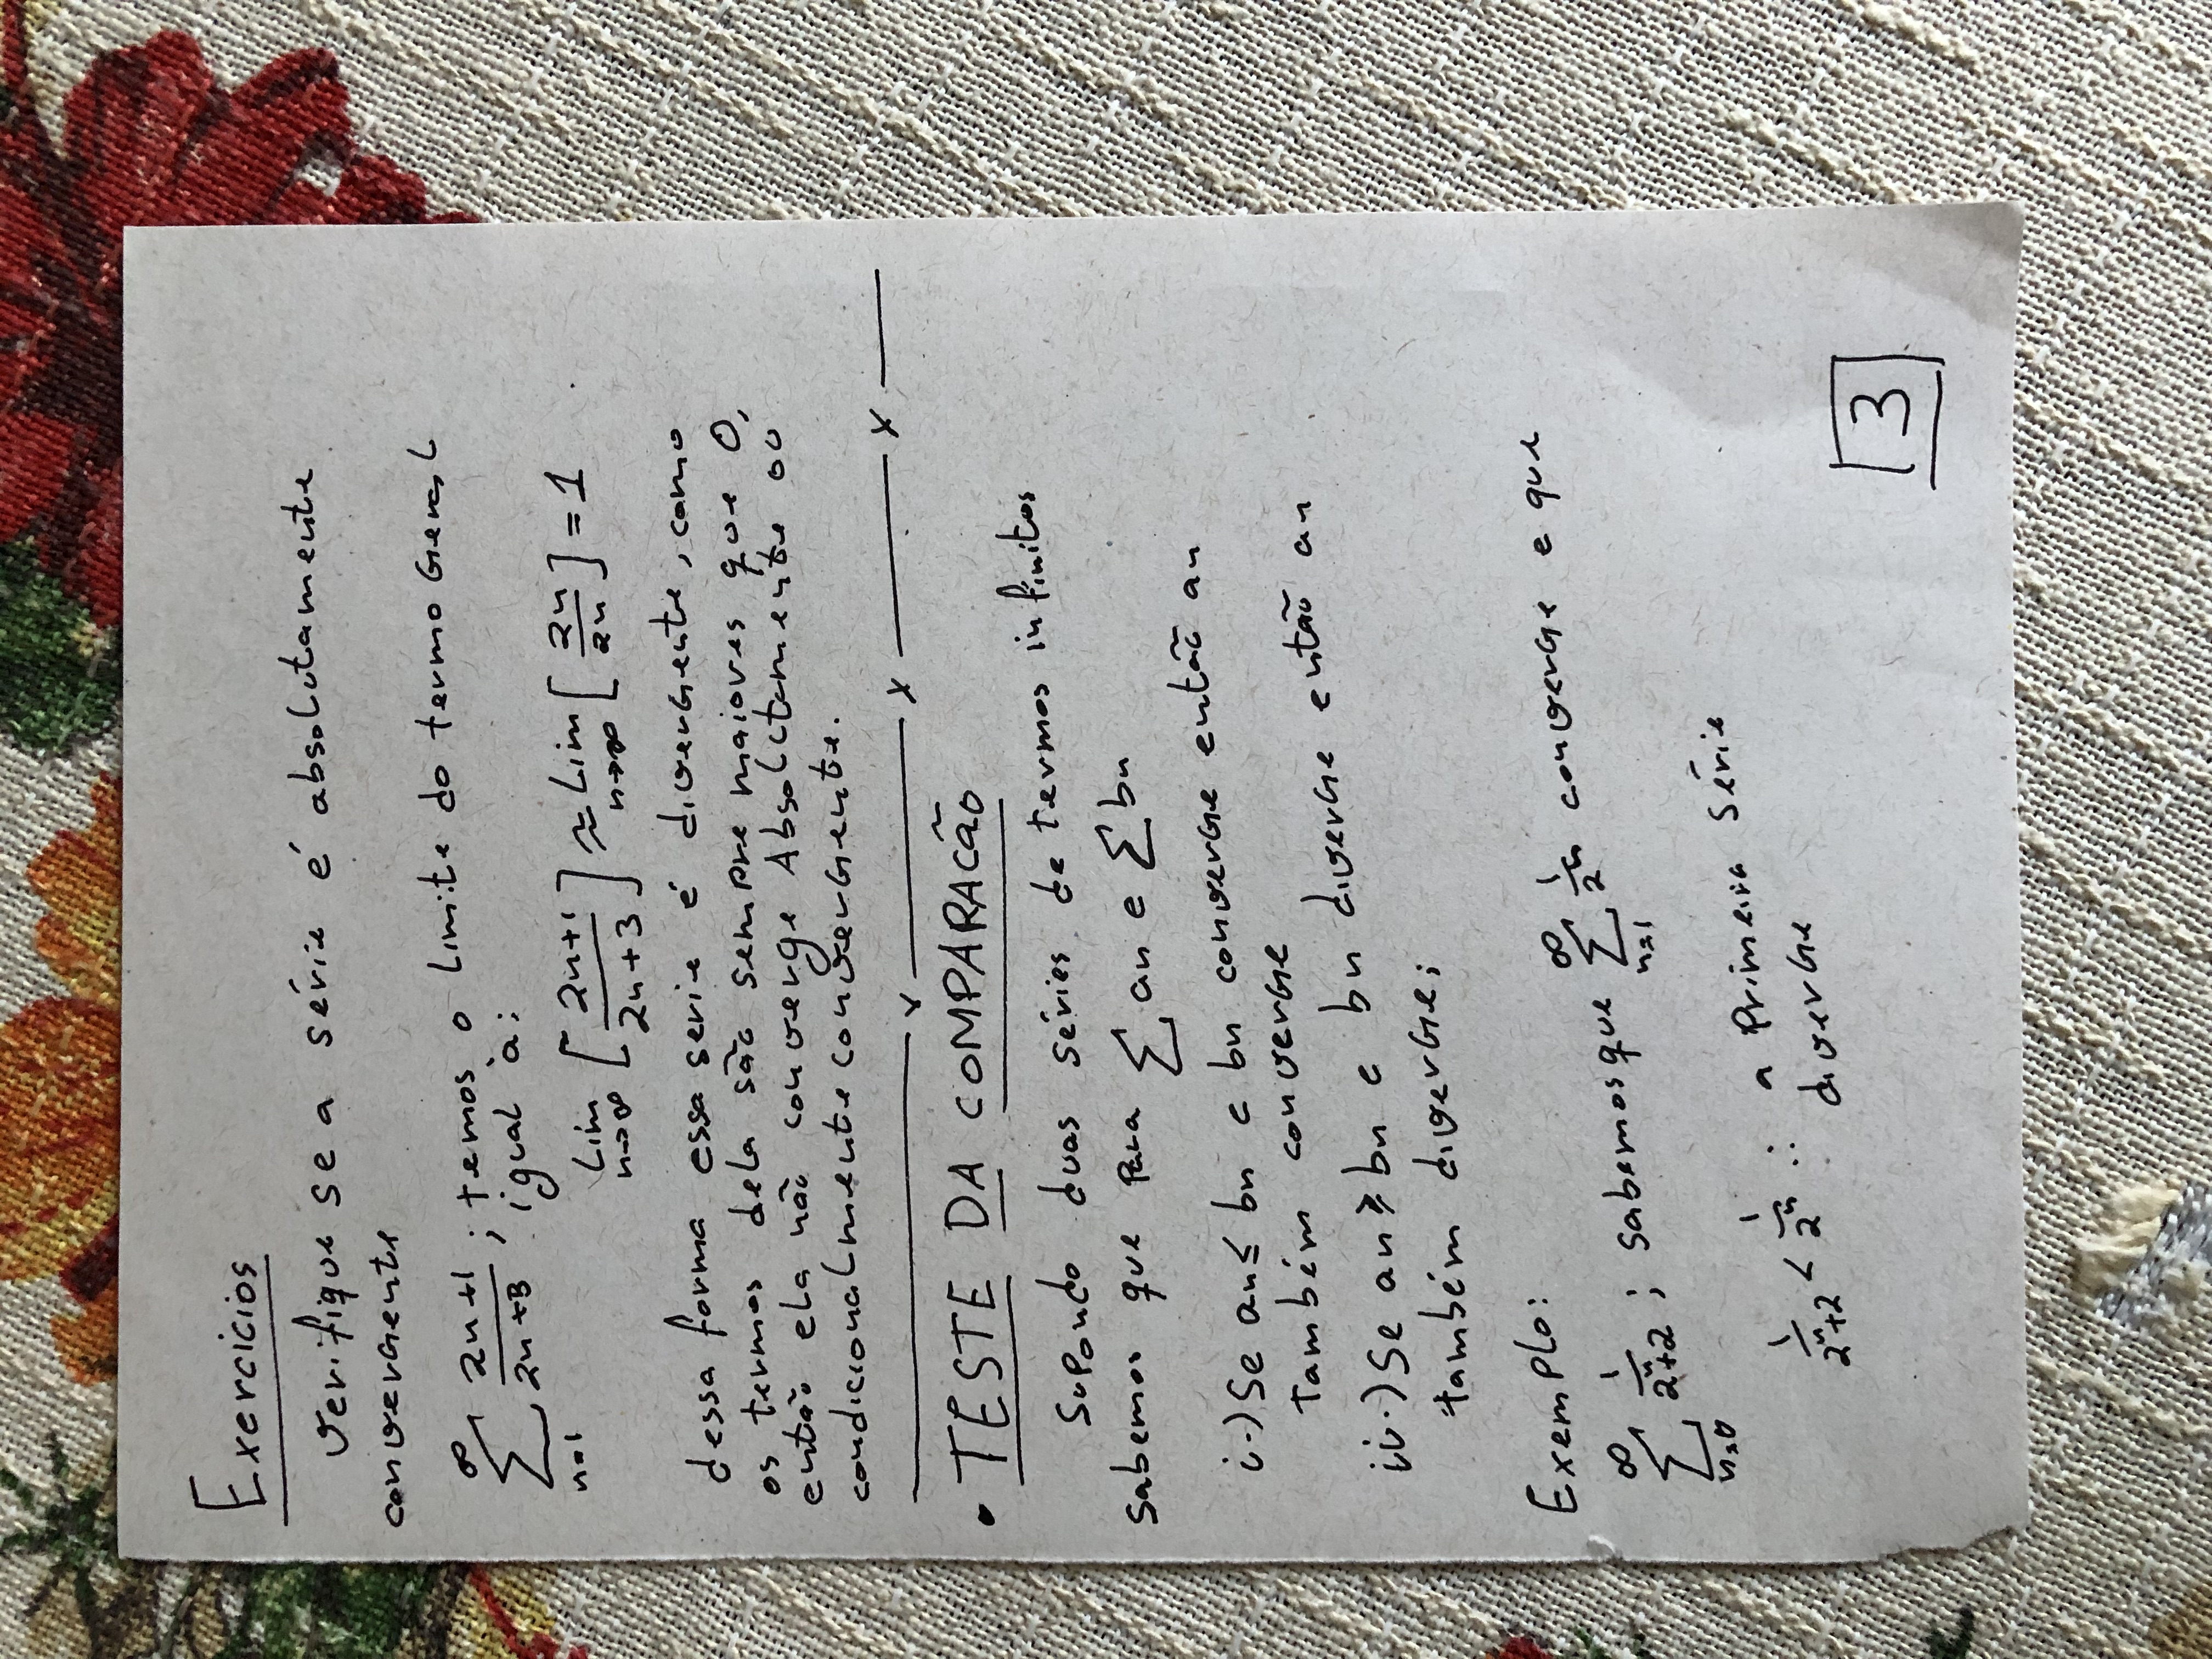 Exercicios
Verifique se a série é absolutamente
convergente
∞ ∑ n=1 2n+1/2n+3 ; temos o limite do termo Geral
igual à:
Lim n→∞ [2n+1/2n+3] ≈ Lim n→∞ [2n/2n] = 1
dessa forma essa serie é divergente, como
os termos dela são sempre maiores que 0,
então ela não converge Absolutamente ou
condicionalmente convergente.
x x x
• TESTE DA COMPARACÃO
Supondo duas séries de termos infinitos
sabemos que para ∑ an e ∑ bn
i.) Se an ≤ bn e bn converge então an
também converge
ii.) Se an ≥ bn e bn diverge então an
também diverge;
Exemplo:
∞ ∑ n=0 1/2ⁿ+2 ; sabemos que ∞ ∑ n=1 1/2ⁿ converge e que
1/2ⁿ+2 < 1/2ⁿ ∴ a primeira série
diverge
3